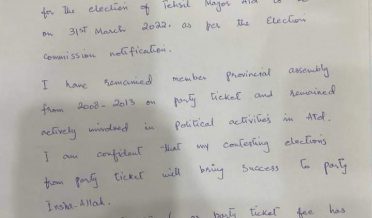 for the election of Tehsil Mayor Atd
on 31st March 2022. as per the Election
Commission notification.
I have remained member provincial assembly
from 2008-2013 on party ticket and remained
actively involved in political activities in Atd.
I am confident that my contesting elections
from party ticket will bring success to party
Insha-Allah.
party ticket fee has